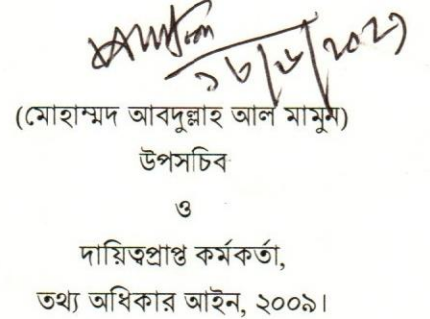 ১৬/৬/২০২১
(মোহাম্মদ আবদুল্লাহ আল মামুন)
উপসচিব
ও
দায়িত্বপ্রাপ্ত কর্মকর্তা,
তথ্য অধিকার আইন, ২০০৯।